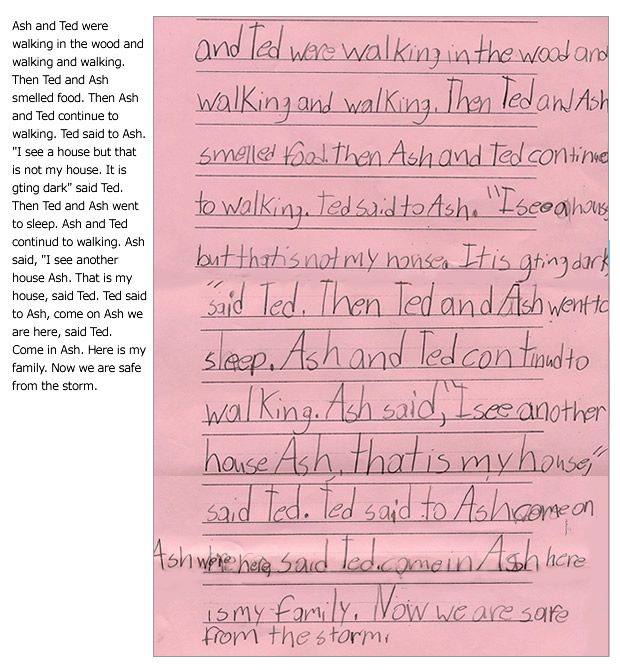 Ash and Ted were
walking in the wood and
walking and walking.
Then Ted and Ash
smelled food. Then Ash
and Ted continue to
walking. Ted said to Ash.
"I see a house but that
is not my house. It is
gting dark" said Ted.
Then Ted and Ash went
to sleep. Ash and Ted
continud to walking. Ash
said, "I see another
house Ash. That is my
house, said Ted. Ted said
to Ash, come on Ash we
are here, said Ted.
Come in Ash. Here is my
family. Now we are safe
from the storm.
and Ted were walking in the wood and
walking and walking. Then Ted and Ash
smelled food. then Ash and Ted continue
to walking. Ted said to Ash. "I see a hous
but that is not my house. It is gting dark
"said Ted. Then Ted and Ash went to
sleep. Ash and Ted continud to
walking. Ash said, "I see another
house Ash, that is my house,"
said Ted. Ted said to Ash come on
Ash were here, said Ted. come in Ash here
is my family. Now we are safe
from the storm.